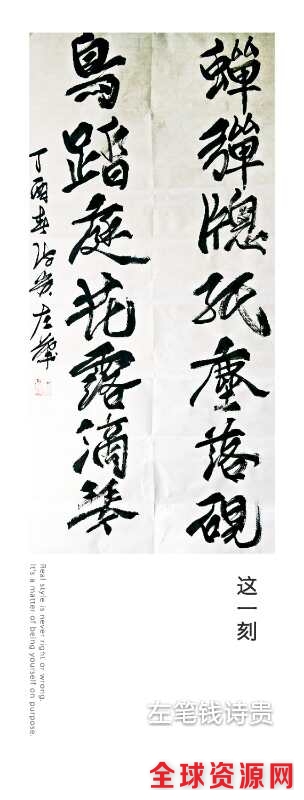 蟬彈牕紙塵落硯
鳥踏庭花露滴琴
丁酉春诗贵左筆
这一刻
Real style is never right or wrong.
It's a matter of being yourself on purpose.
左笔钱诗贵
全球资源网